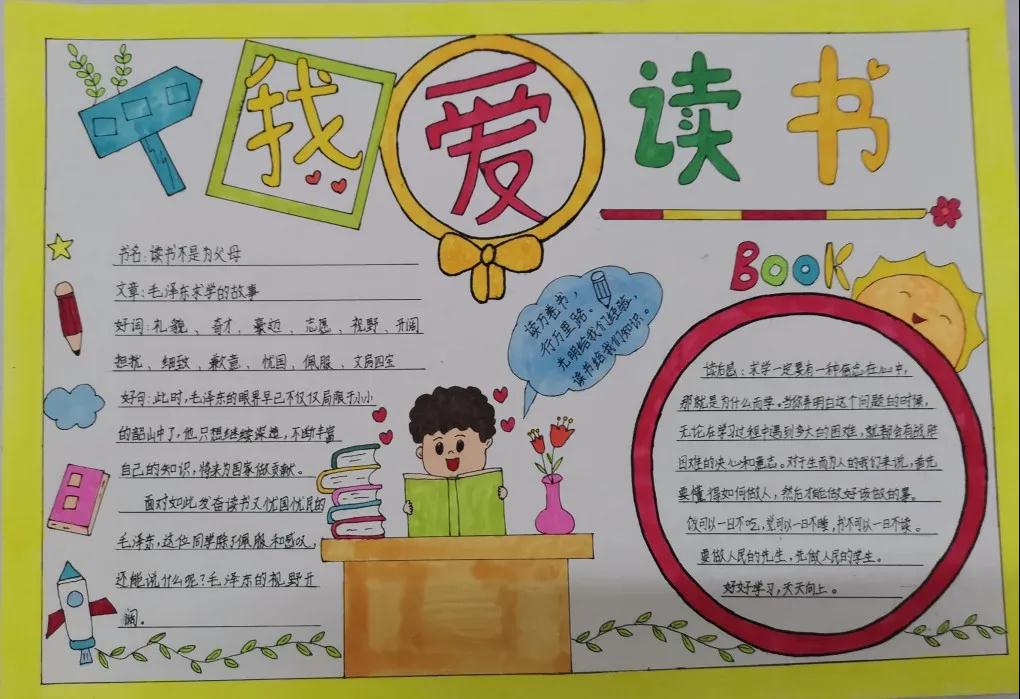 我爱读书
书名:读书不是为父母
文章:毛泽东求学的故事
好词:礼貌、奇才、豪迈、志愿、视野、开阔
担扰、细致、歉意、忧国、佩服、文房四宝
好句:此时,毛泽东的眼界早已不仅仅局限于小小
的韶山冲了,他只想继续深造,不断丰富
自己的知识,将来为国家做贡献。
面对如此发奋读书又忧国忧民的
毛泽东,这位同学除了佩服和感叹,
还能说什么呢?毛泽东的视野开
阔。
读万卷书,
行万里路。
光明给我们经验,
读书给我们知识。
BOOK
读后感:求学一定要有一种信念在心中,
那就是为什么而学。当你弄明白这个问题的时候,
无论在学习过程中遇到多大的困难,就都会有战胜
困难的决心和意志。对于生而为人的我们来说,首先
要懂得如何做人,然后才能做好该做的事。
饭可以一日不吃,觉可以一日不睡,书不可以一日不读。
要做人民的先生,先做人民的学生。
好好学习,天天向上。